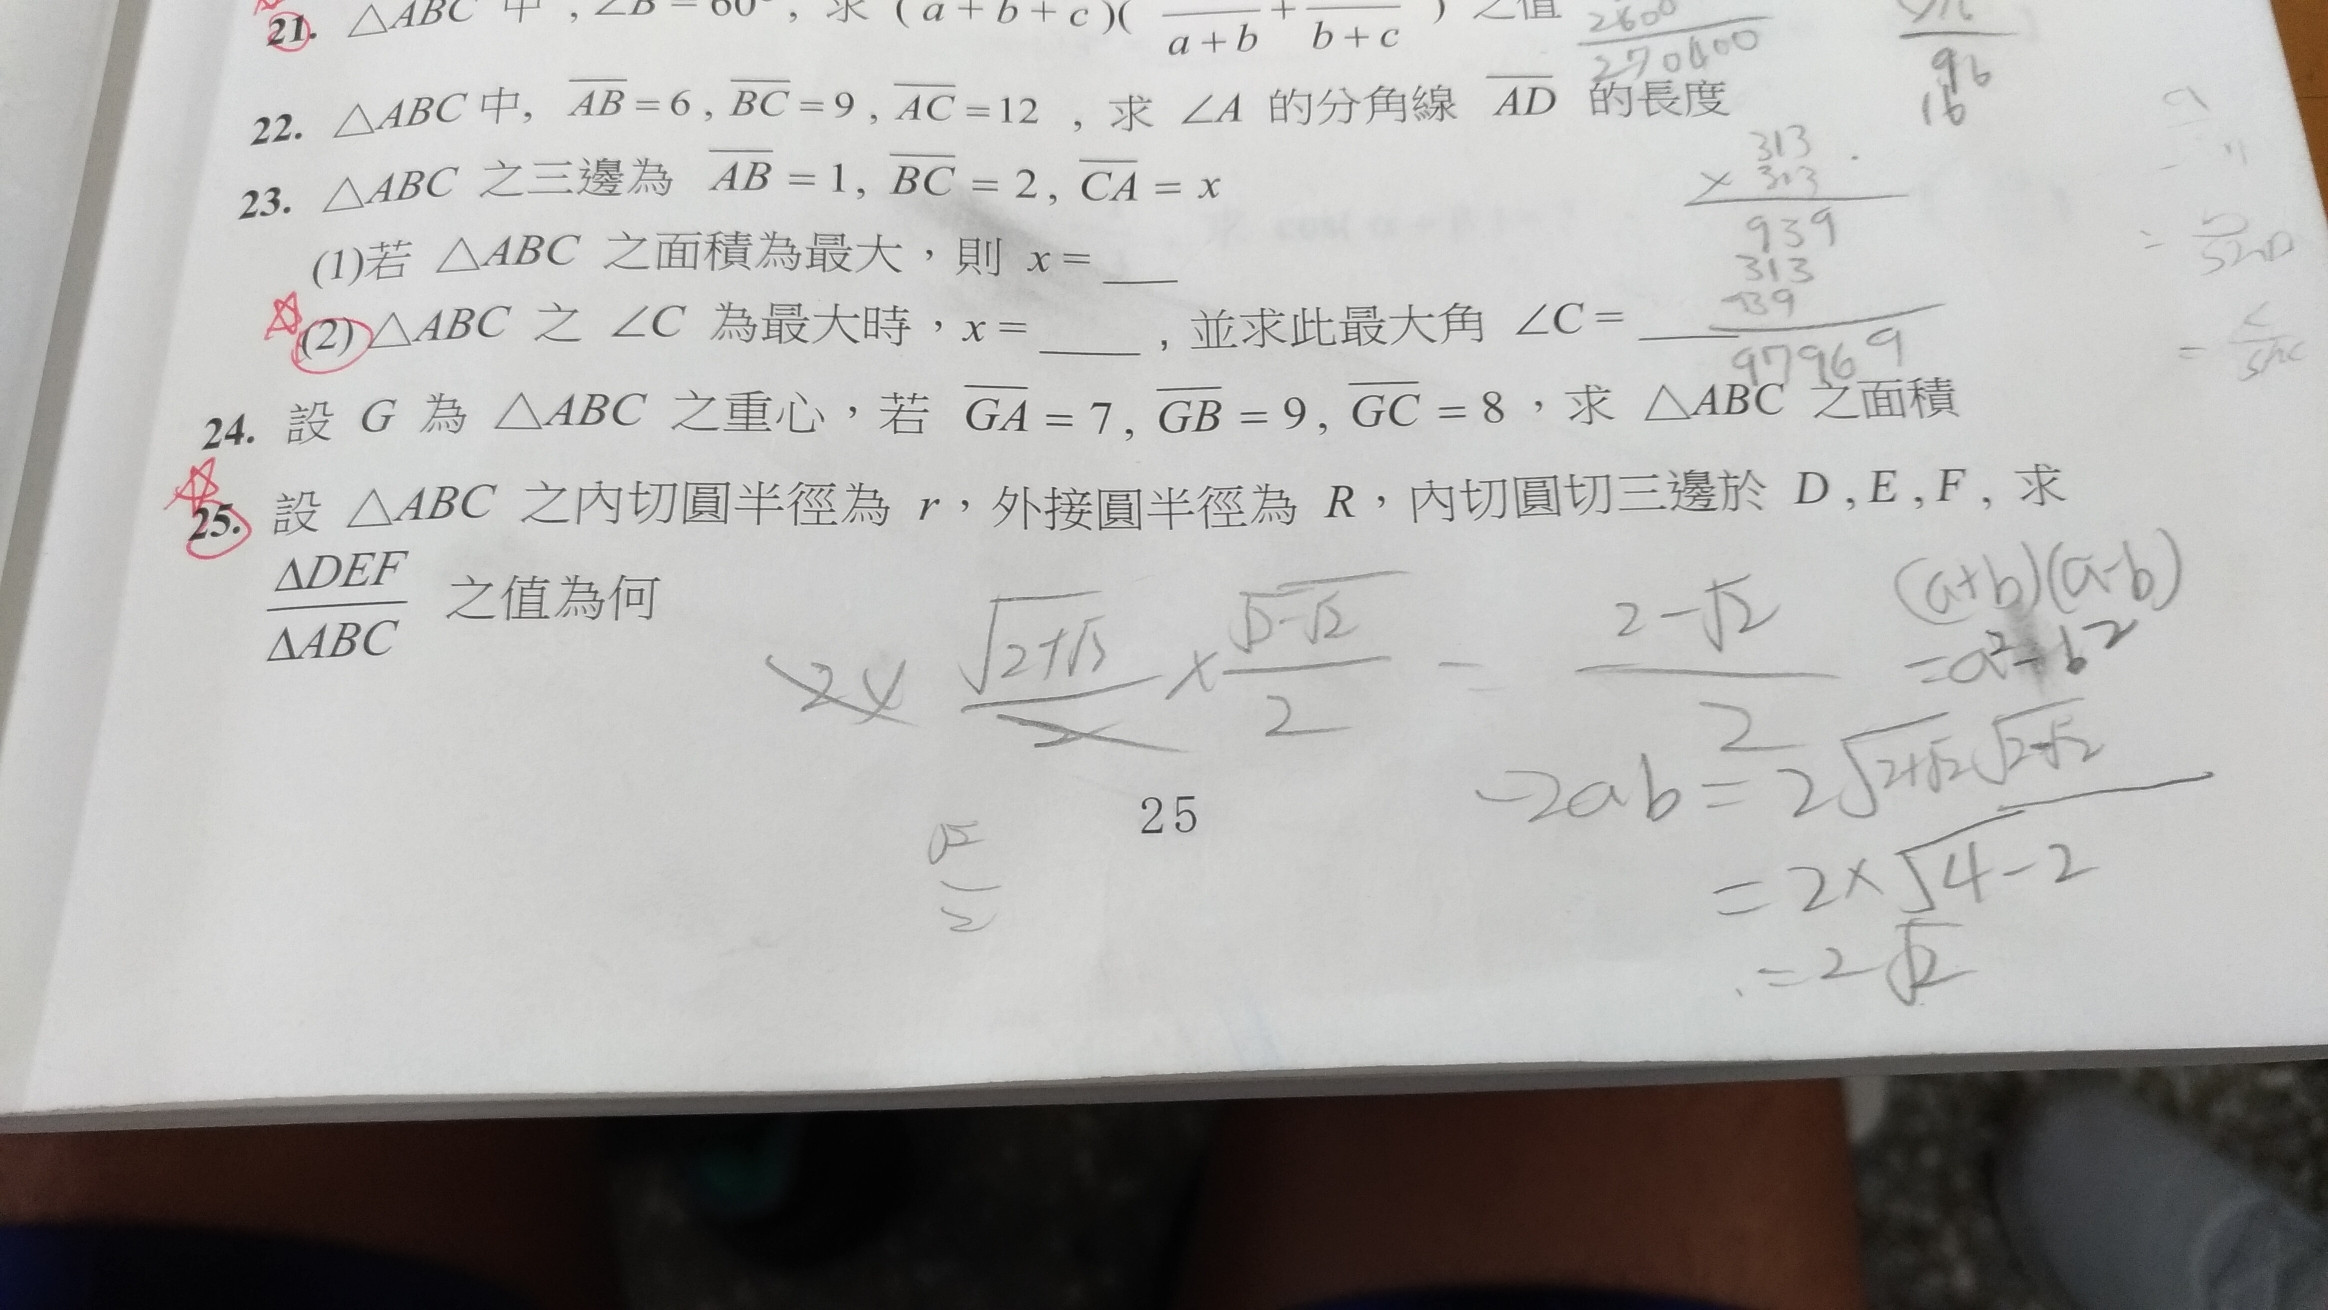 21. △ABC 中, ∠B = 60°, 求 (a+b+c)( /a+b + /b+c ) 之值
22. △ABC 中, AB = 6, BC = 9, AC = 12, 求 ∠A 的分角線 AD 的長度
23. △ABC 之三邊為 AB = 1, BC = 2, CA = x
(1)若 △ABC 之面積為最大，則 x = ___
(2) △ABC 之 ∠C 為最大時，x = ____, 並求此最大角 ∠C = ____
24. 設 G 為 △ABC 之重心，若 GA = 7, GB = 9, GC = 8，求 △ABC 之面積
25. 設 △ABC 之內切圓半徑為 r，外接圓半徑為 R，內切圓切三邊於 D, E, F, 求
ΔDEF/ΔABC 之值為何
25
2600
270400
96
16
313
× 313
939
313
939
97969
2-√2
2
(a+b)(a-b)
=a²-b²
-2ab = 2√2+√2 √2-√2
= 2×√4-2
= 2√2